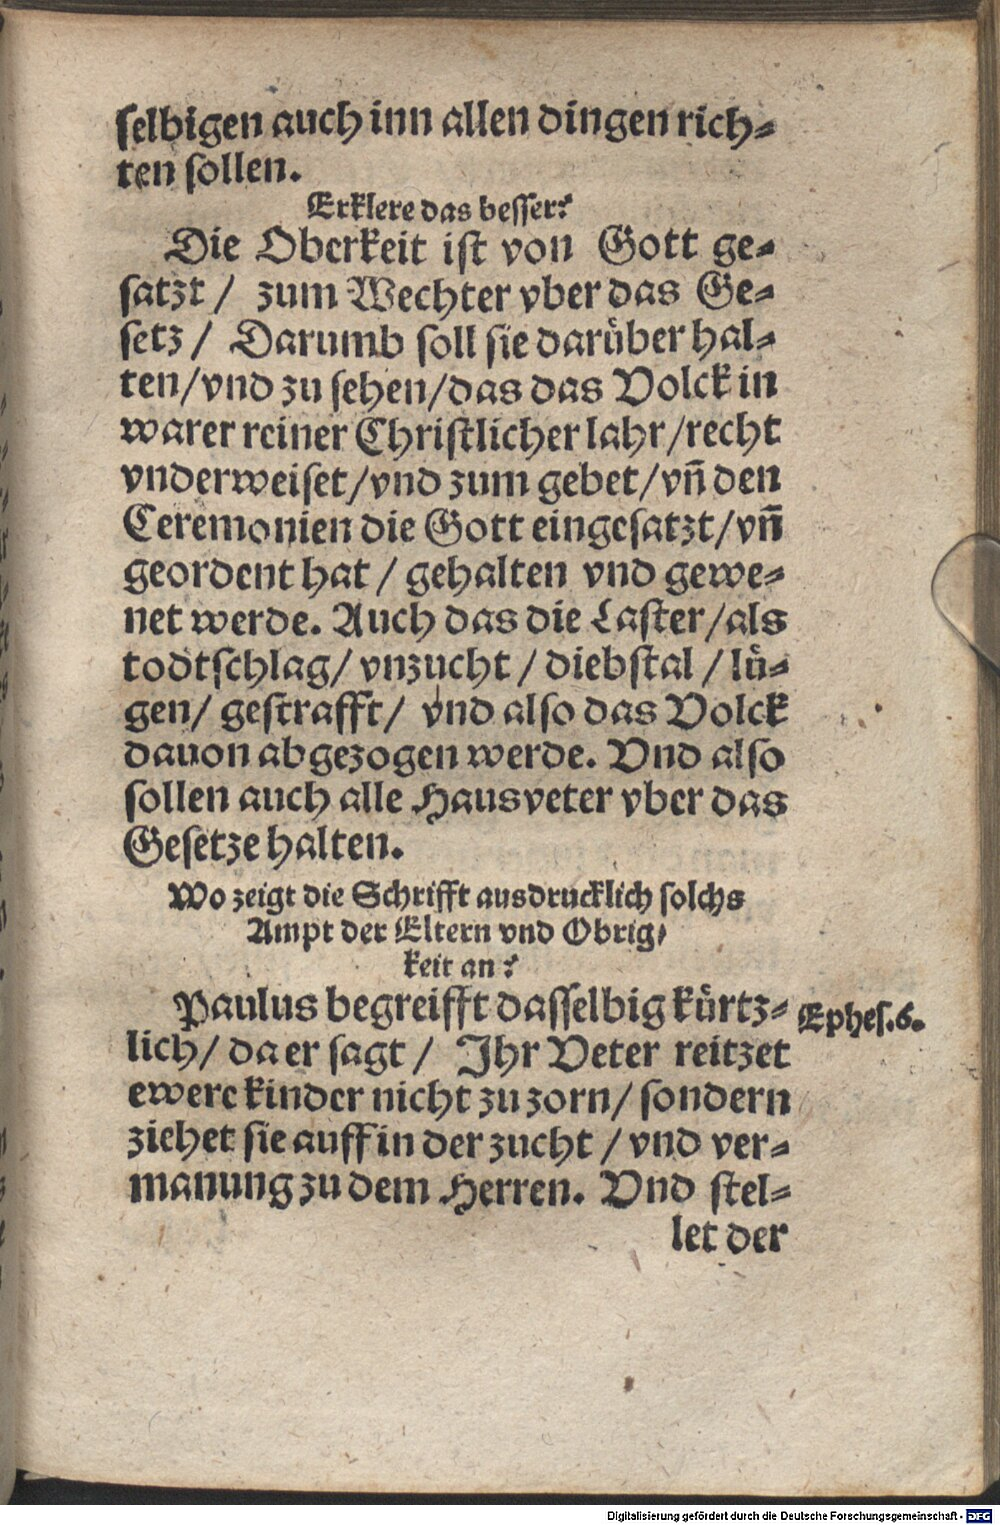 selbigen auch inn allen dingen rich⸗
ten sollen.
Erklere das besser?
Die Oberkeit ist von Gott ge⸗
satzt / zum Wechter vber das Ge⸗
setz / Darumb soll sie darüber hal⸗
ten/vnd zu sehen/das das Volck in
warer reiner Christlicher lahr/recht
vnderweiset/vnd zum gebet/vñ den
Ceremonien die Gott eingesatzt/vñ
geordent hat / gehalten vnd gewe⸗
net werde. Auch das die Laster/als
todtschlag/ vnzucht / diebstal / lü⸗
gen/ gestrafft/ vnd also das Volck
dauon abgezogen werde. Vnd also
sollen auch alle Hausveter vber das
Gesetze halten.
Wo zeigt die Schrifft ausdrucklich solchs
Ampt der Eltern vnd Obrig⸗
keit an?
Paulus begreifft dasselbig kürtz⸗ Ephes.6.
lich/ da er sagt / Ihr Veter reitzet
ewere kinder nicht zu zorn/ sondern
ziehet sie auff in der zucht / vnd ver⸗
manung zu dem Herren. Vnd stel⸗
let der
Digitalisierung gefördert durch die Deutsche Forschungsgemeinschaft - DFG